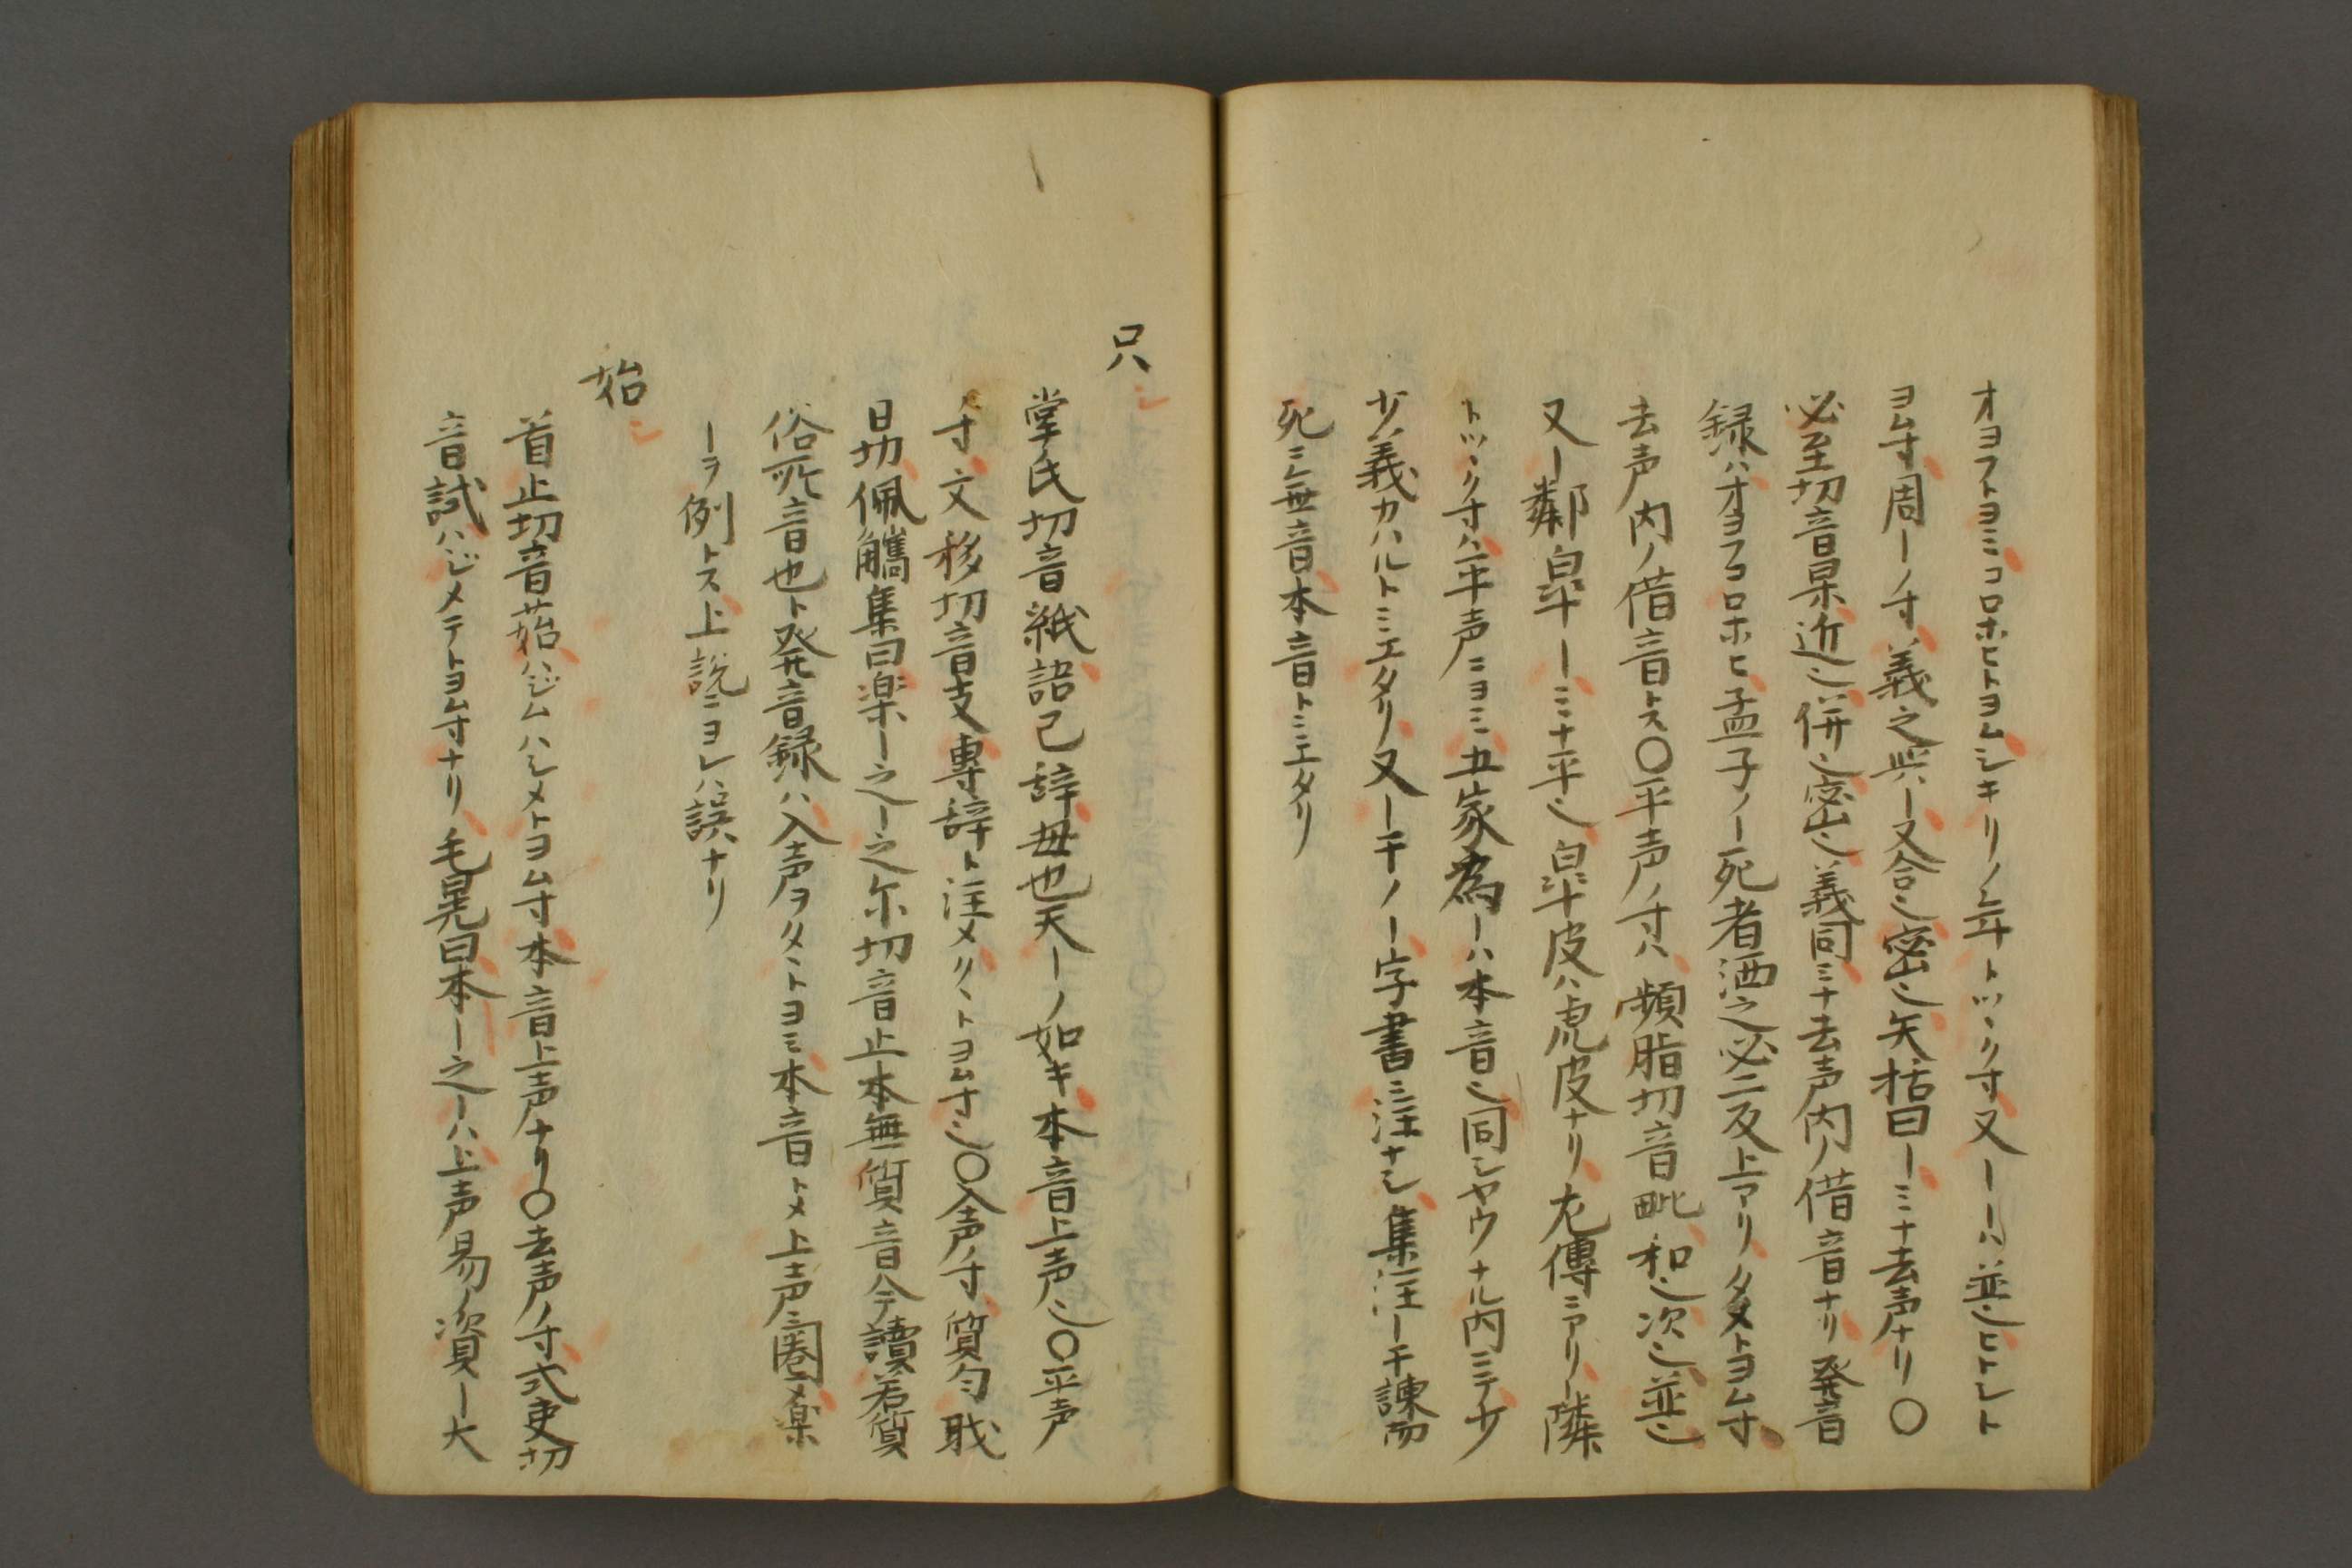 オヨフトヨミコロホヒトヨムシキリノ年トツヽク寸又ーーハ並也ヒトシト
ヨム寸周ーノ寸義之與ー又合也密也矢括曰ーミナ去声ナリ〇
必至切音杲近也併也密也義同ミナ去声内ノ借音ナリ発音
録ハオヨフコロホヒ孟子ノー死者洒之必二反上アリタメトヨム寸
去声内ノ借音トス〇平声ノ寸ハ頻脂切音毗和也次也並也
又ー鄰皐ーミナ平也皐皮ハ虎皮ナリ左傳ニアリー隣
トツヽク寸ハ平声ニヨミ五家為ーハ本音也同シヤウナル内ニテ少
少義カハルトミエタリ又ー干ノー字書ニ注ナシ集注ー干諫而
死ニ無音本音トミエタリ
只 シ
掌氏切音紙語已辞毋也天ーノ如キ本音上声也〇平声
ノ寸文移切音支專辞ト注メタヽトヨム寸也〇入声ノ寸質匀職
日切佩觿集曰楽ー之ー之尓切音止本無質音今讀若質
俗所音也ト発音録ハ入声ヲタヽトヨミ本音トメ上声ニ圏メ楽
ーヲ例トス上説ニヨレハ誤ナリ
始 シ
首止切音菭ハジムハシメトヨム寸本音上声ナリ〇去声ノ寸式吏切
音試ハジメテトヨム寸ナリ毛晃曰本ー之ーハ上声易ノ資ー大